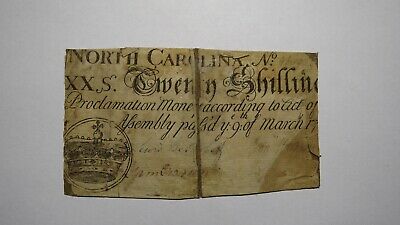 NORTH CAROLINA, No
XX S. Twenty Shilling
Proclamation Money according to act of
Assembly pass'd ye. 9th of March 17